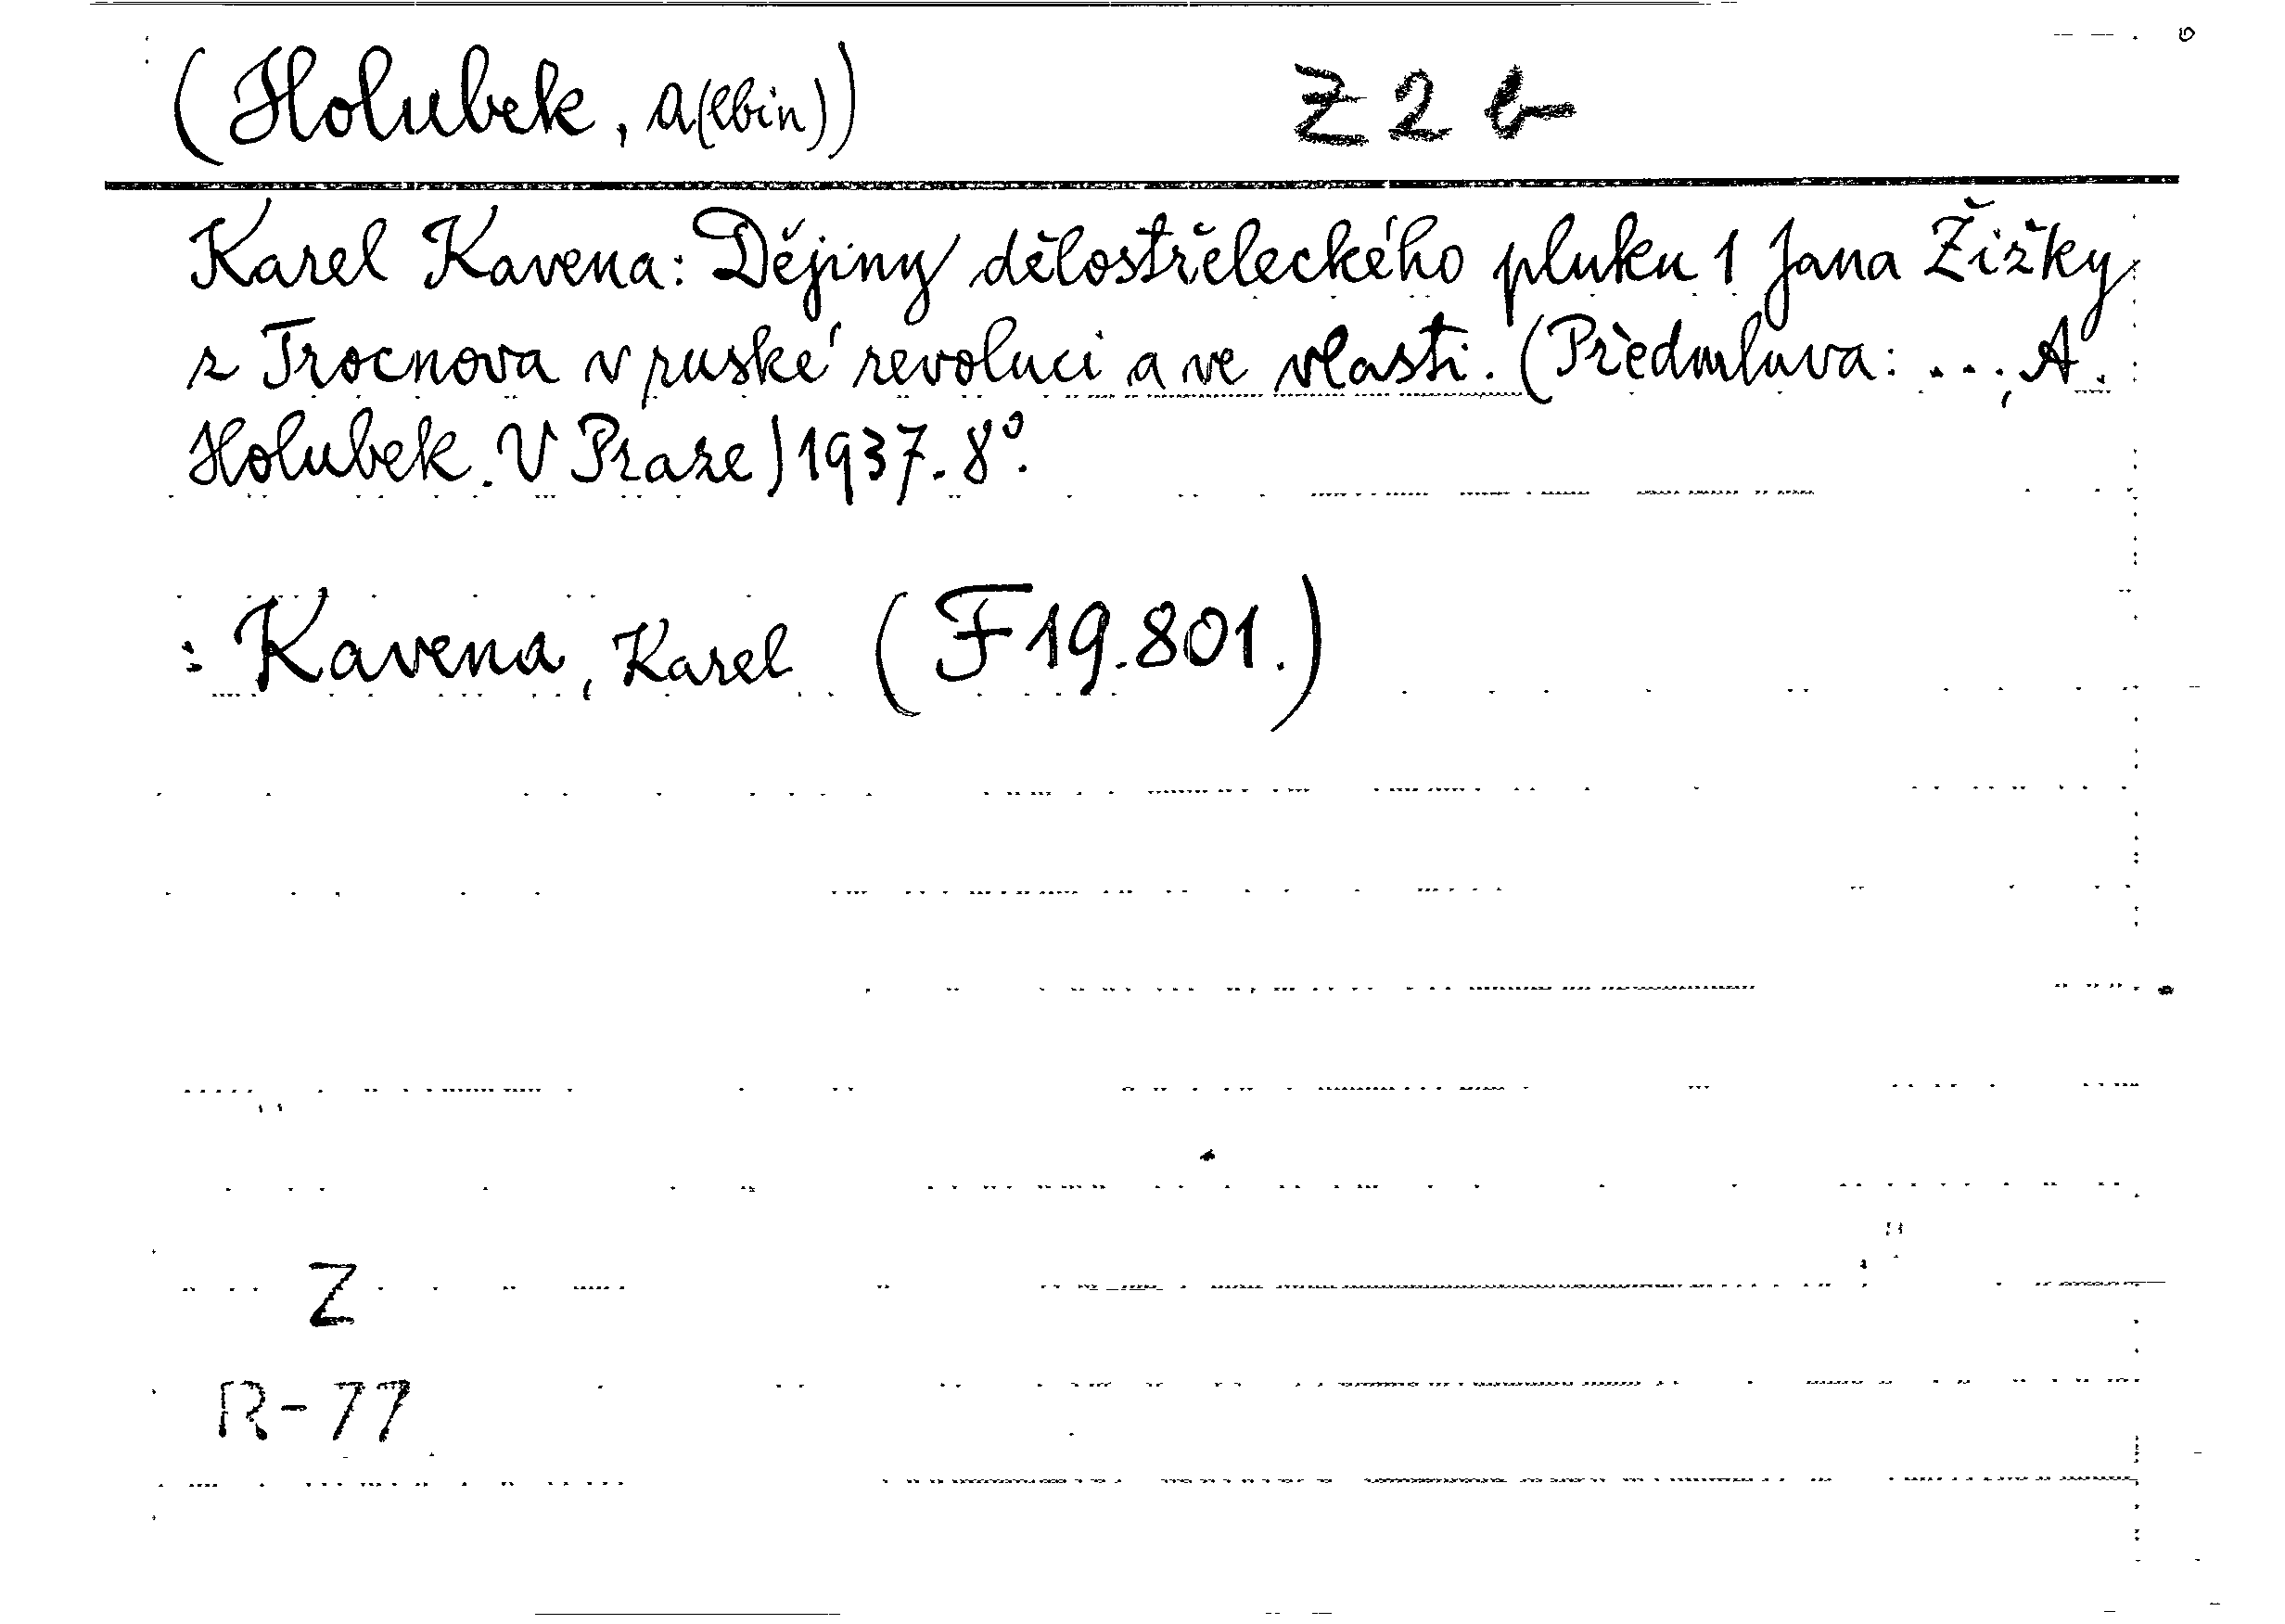 (Holubek, A(lbin)) Z 2 b
Karel Kavena: Dějiny dělostřeleckého pluku 1 Jana Žižky
z Trocnova v ruské revoluci a ve vlasti. (Předmluva: ..., A.
Holubek. V Praze) 1937. 8°.
: Kavena, Karel (F 19.801.)
Z
R-77